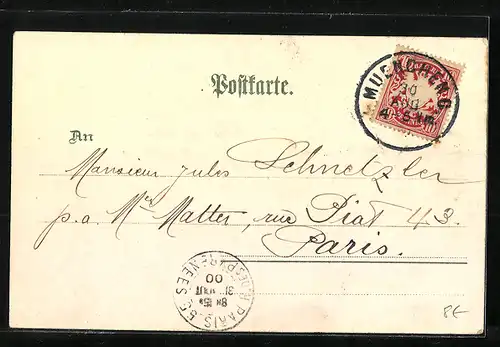 Postkarte.
MUENCHEN
30
AUG
4-5 NM
An
Monsieur Jules Schnetzler
p.a. Mr Matter, rue Piat 43.
Paris.
PARIS. 56
RUE DES PYRENEES
8H 15
31 AOUT
00
8E